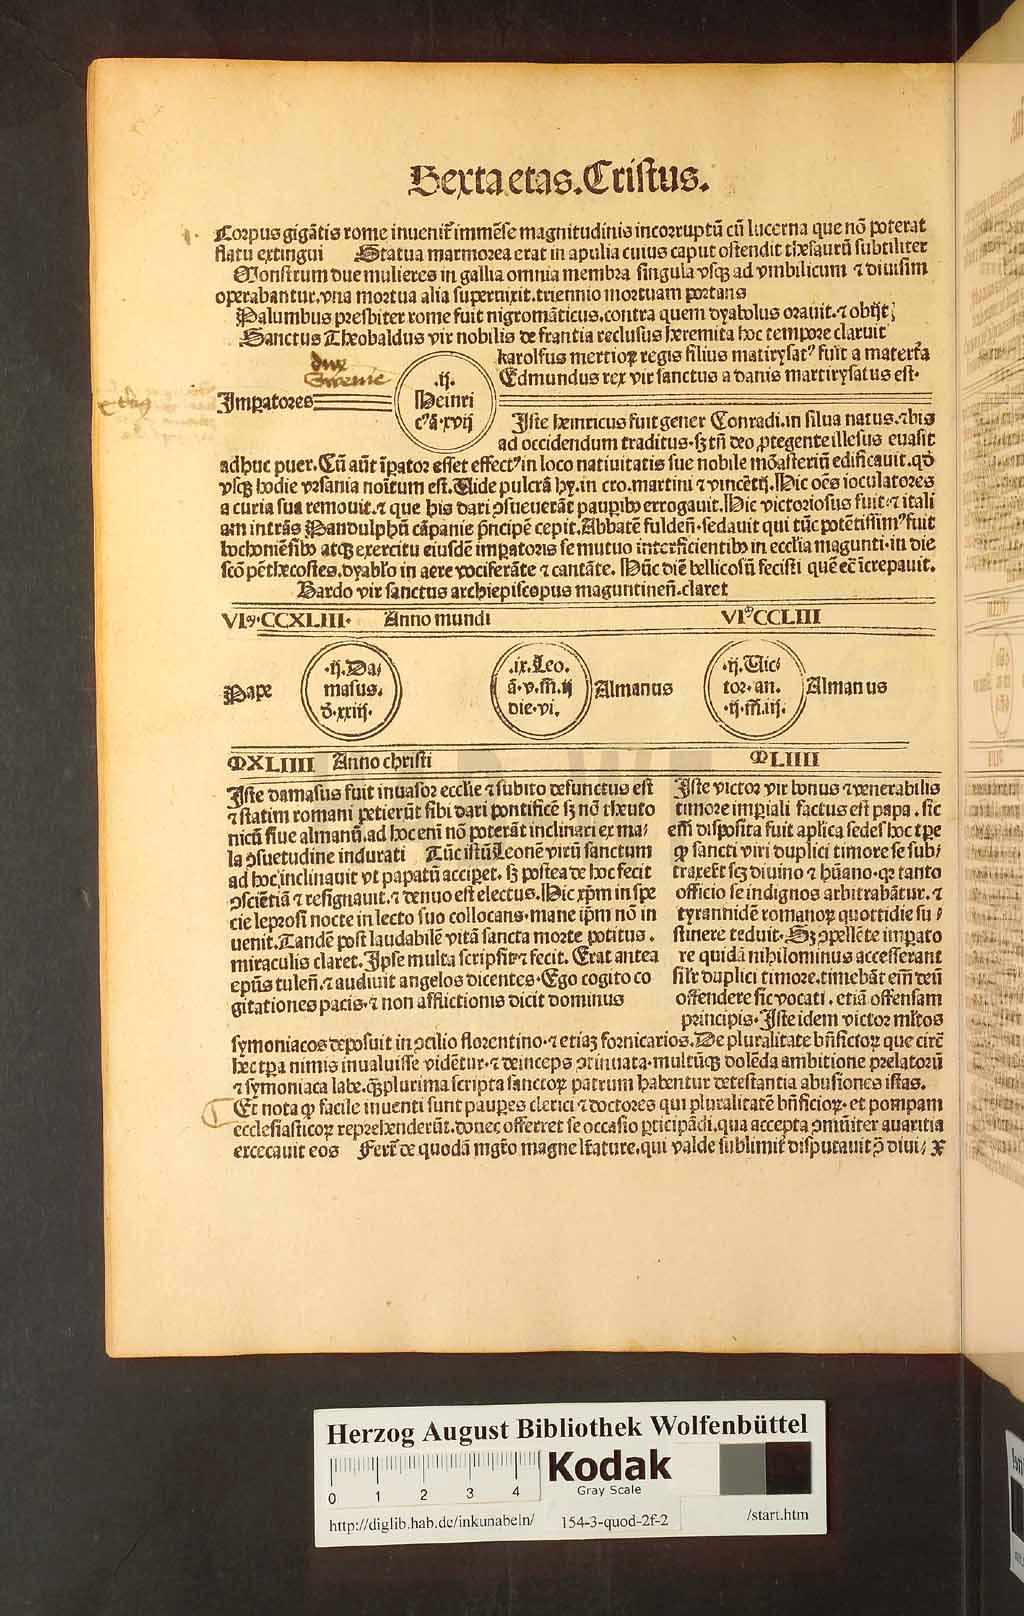 Sexta etas. Cristus.
Corpus gigātis rome inuenit᷑ immēse magnitudinis incorruptū cū lucerna que nō poterat
flatu extingui Statua marmorea erat in apulia cuius caput ostendit thesaurū subtiliter
Monstrum due mulieres in gallia omnia membra singula vsqꝫ ad vmbilicum ⁊ diuisim
operabantur. vna mortua alia superuixit. triennio mortuam portans
Palumbus presbiter rome fuit nigromāticus. contra quem dyabolus orauit. ⁊ obijt
Sanctus Theobaldus vir nobilis de frantia reclusus heremita hoc tempore claruit
karolfus mertioꝝ regis filius matirysatꝰ fuit a
Edmundus rex vir sanctus a danis martirysatus est.
dux
Imꝑatores
.ij.
Heinri
cꝰ ā. xvij
Iste heinricus fuit gener Conradi. in silua natus. ⁊ bis
ad occidendum traditus. sꝫ tn̄ deo ꝓtegente illesus euasit
adhuc puer. Cū aūt īꝑator esset effectꝰ in loco natiuitatis sue nobile mōasteriū edificauit. qd̄
vsqꝫ hodie vrsania noītum est. Aide pulcrā hy. in cro. martini ⁊ vincētij. Hic oēs ioculatores
a curia sua remouit. ⁊ que his dari ↄsueuerāt pauꝑibꝰ errogauit. Hic victoriosus fuit. ⁊ itali
am intrās Pandulphū cāpanie p̄ncipē cepit. Abbatē fuldeñ. sedauit qui tūc potētissimꝰ fuit
bochoniēsibꝰ atqꝫ exercitu eiusdē imꝑatoris se mutuo interficientibꝰ in ecclia magunti. in die
scō pēthecostes. dyablo in aere vociferāte ⁊ cantāte. Hūc diē bellicosū fecisti quē ec̄ īcrepauit.
Bardo vir sanctus archiepiscopus maguntineñ. claret
VIꝰ. CCXLIII. Anno mundi VIᵐ CCLIII
Pape
.ij. Da⸗
masus.
d. xxiij.
.ix. Leo.
ā. v. m̄. ij
die. vi.
Almanus
.ij. Vic⸗
tor. an.
.ij. m̄. iij.
Almanus
MXLIIII Anno christi MLIIII
Iste damasus fuit inuasor ecclie ⁊ subito defunctus est
⁊ statim romani petierūt sibi dari pontificē sꝫ nō theuto
nicū siue almanū. ad hoc enī nō poterāt inclinari ex ma⸗
la ↄsuetudine indurati Tūc istū Leonē virū sanctum
ad hoc inclinauit vt papatū acciꝑet. sꝫ postea de hoc fecit
ↄsciētiā ⁊ resignauit. ⁊ denuo est electus. Hic xp̄m in spe
cie leprosi nocte in lecto suo collocans. mane ip̄m nō in
uenit. Tandē post laudabilē vitā sancta morte potitus.
miraculis claret. Ipse multa scripsit ⁊ fecit. Erat antea
ep̄us tuleñ. ⁊ audiuit angelos dicentes. Ego cogito co
gitationes pacis. ⁊ non afflictionis dicit dominus
Iste victor vir bonus ⁊ venerabilis
timore imꝑiali factus est papa. sic
em̄ disposita fuit aplica sedes hoc tꝑe
ꝙ sancti viri duplici timore se sub⸗
traxer̄t scꝫ diuino ⁊ hūano. qꝛ tanto
officio se indignos arbitrabātur. ⁊
tyrannidē romanoꝝ quottidie su⸗
stinere teduit. Sꝫ ↄpellēte imꝑato
re quidā nihilominus accesserant
silr̄ duplici timore. timebāt em̄ deū
offendere sic vocati. etiā offensam
principis. Iste idem victor ml̄tos
symoniacos deposuit in ↄcilio florentino. ⁊ etiaꝫ fornicarios. De pluralitate bn̄fictoꝝ que circē
hec tꝑa nimis inualuisse vidētur. ⁊ deinceps ↄtinuata. multūqꝫ dolēda ambitione prelatorū
⁊ symoniaca labe. qꝫplurima scripta sanctoꝝ patrum habentur detestantia abusiones istas.
Et nota ꝙ facile inuenti sunt pauꝑes clerici ⁊ doctores qui pluralitatē bn̄ficioꝝ. et pompam
ecclesiasticoꝝ reprehenderūt. donec offerret se occasio ꝑticipādi. qua accepta ↄmūiter auaritia
excecauit eos Fert᷑ de quodā mgr̄o magne lr̄ature. qui valde sublimit᷑ disputauit ↄ̄ diui⸗ x
Herzog August Bibliothek Wolfenbüttel
0 1 2 3 4
Kodak
Gray Scale
http://diglib.hab.de/inkunabeln/ 154-3-quod-2f-2 /start.htm